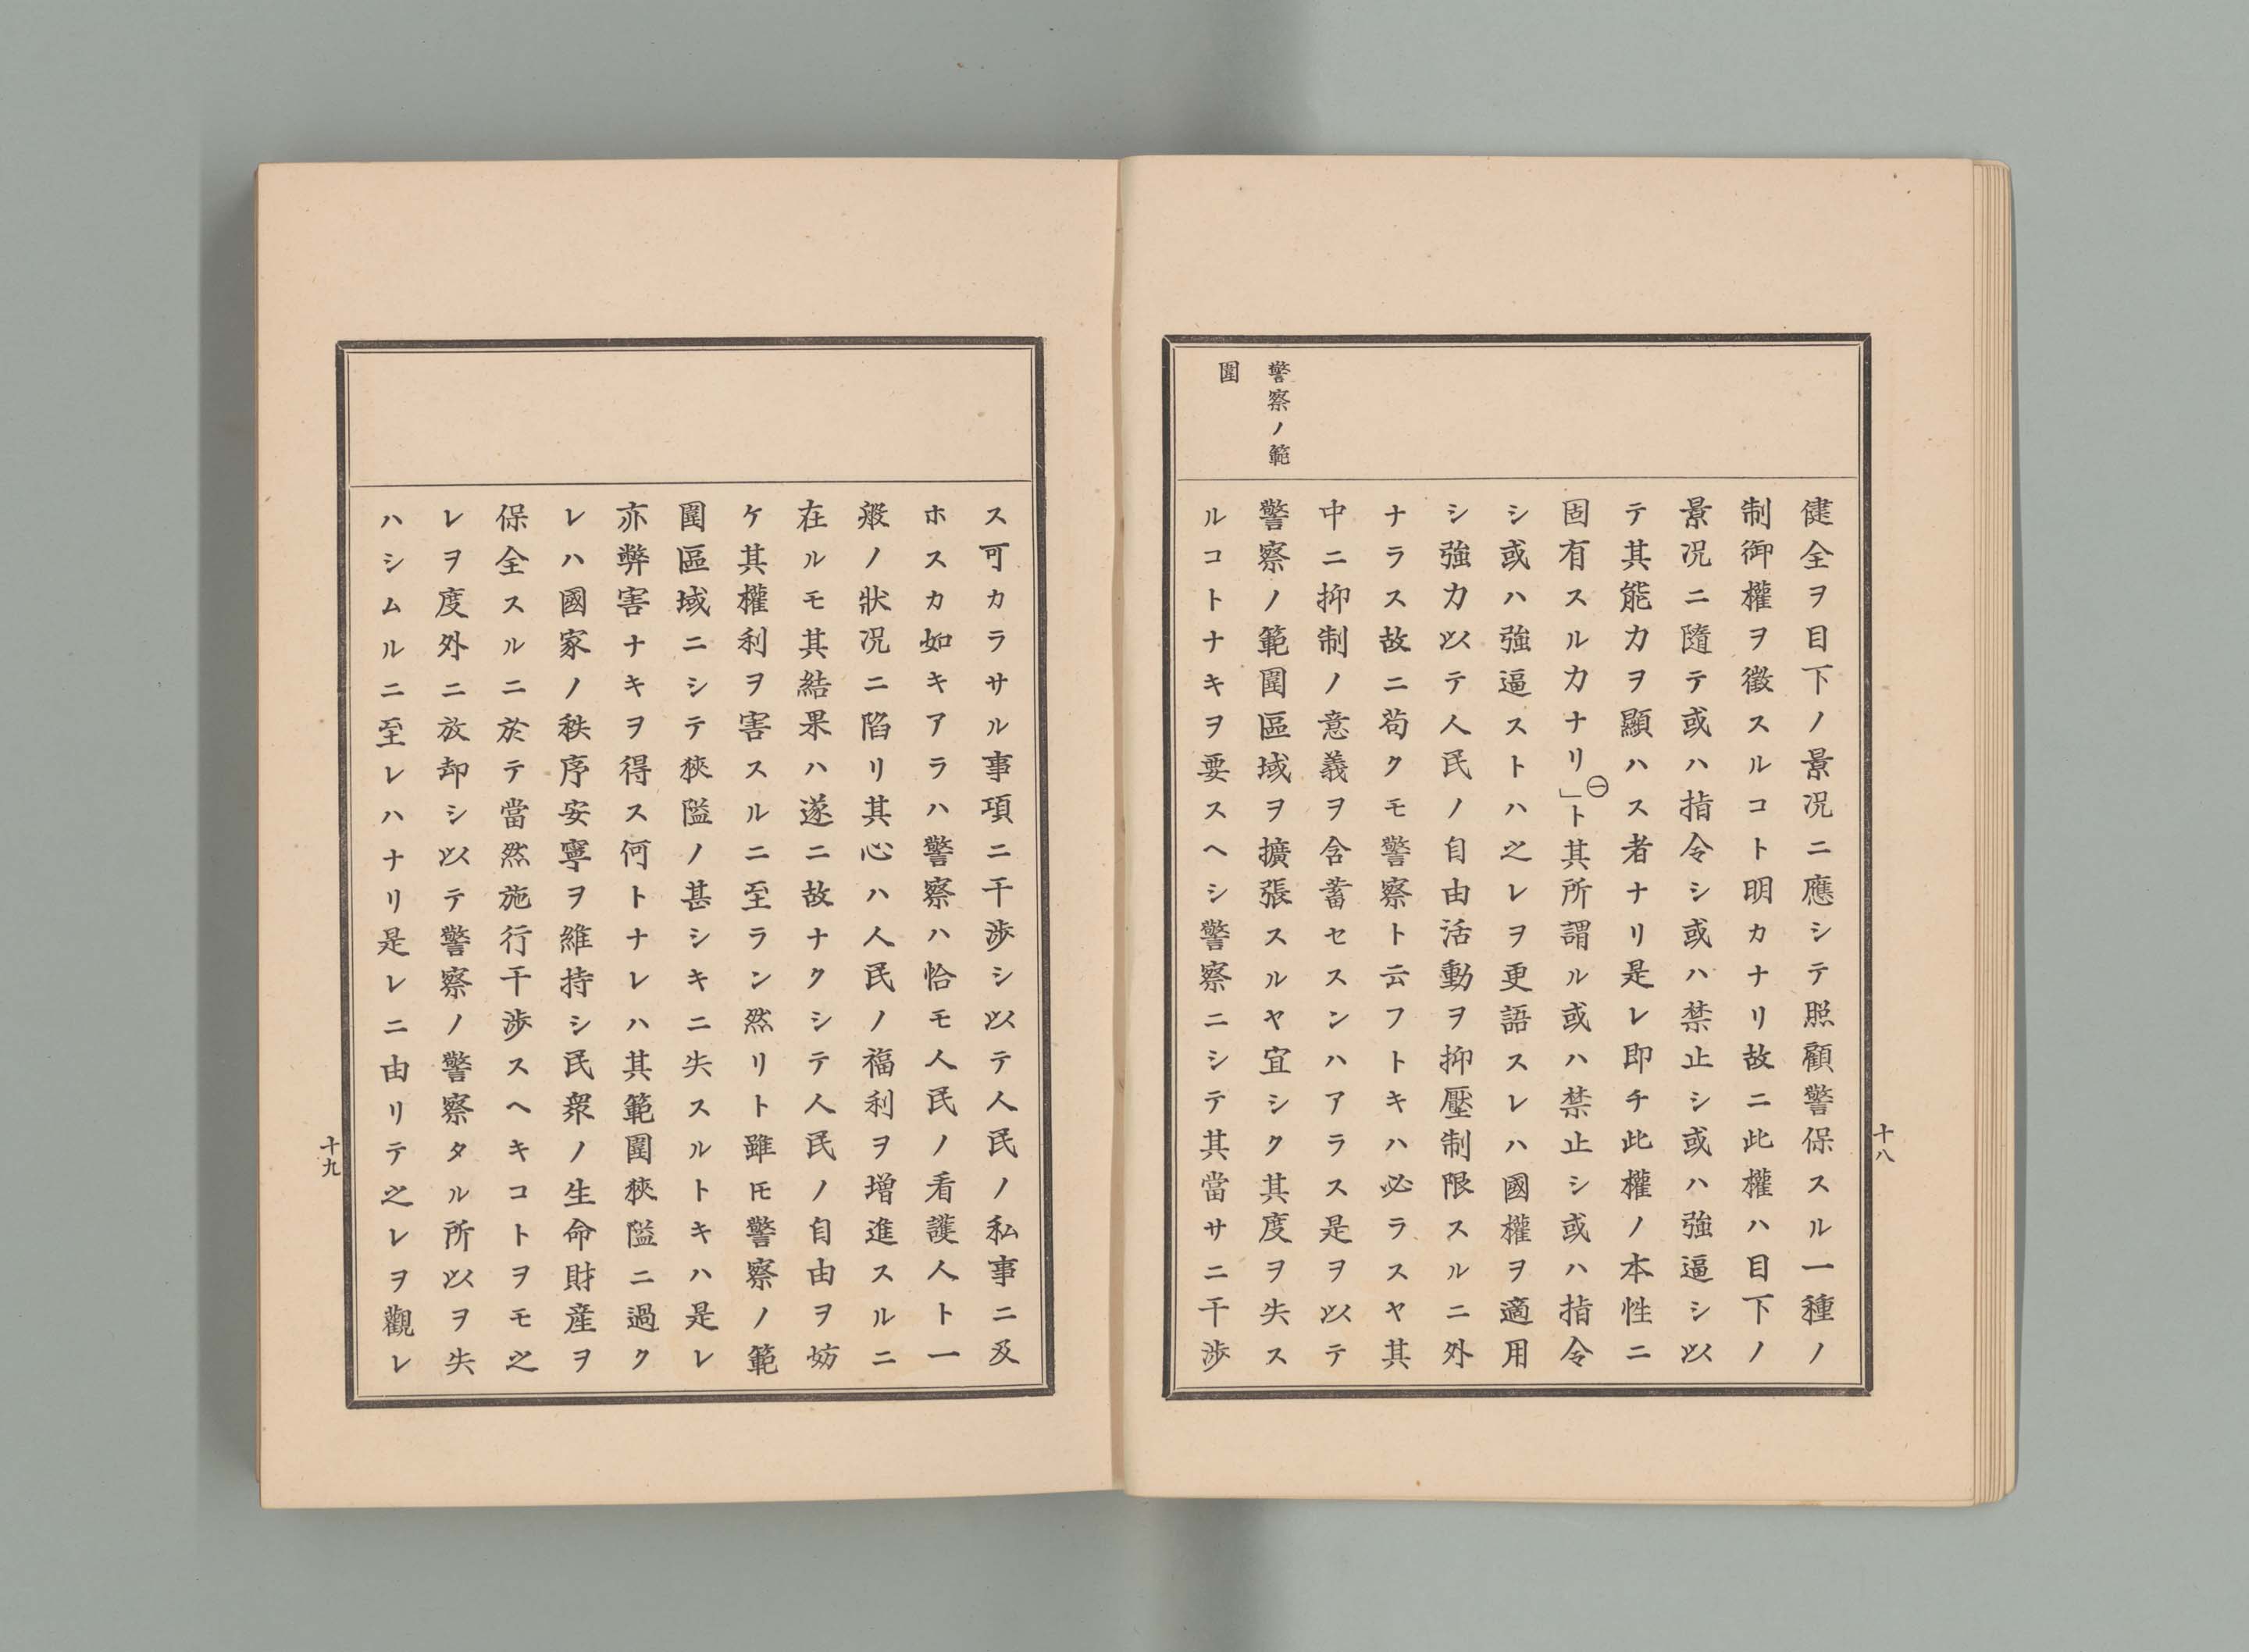 十八
警察ノ範
圍
健全ヲ目下ノ景况ニ應シテ照顧警保スル一種ノ
制御權ヲ徵スルコト明カナリ故ニ此權ハ目下ノ
景况ニ隨テ或ハ指令シ或ハ禁止シ或ハ強逼シ以
テ其能力ヲ顯ハス者ナリ是レ即チ此權ノ本性ニ
固有スル力ナリ」㊀ト其所謂ル或ハ禁止シ或ハ指令
シ或ハ強逼ストハ之レヲ更語スレハ國權ヲ適用
シ強力以テ人民ノ自由活動ヲ抑壓制限スルニ外
ナラス故ニ苟クモ警察ト云フトキハ必ラスヤ其
中ニ抑制ノ意義ヲ含蓄セスンハアラス是ヲ以テ
警察ノ範圍區域ヲ擴張スルヤ宜シク其度ヲ失ス
ルコトナキヲ要スヘシ警察ニシテ其當サニ干渉
ス可カラサル事項ニ干渉シ以テ人民ノ私事ニ及
ホスカ如キアラハ警察ハ恰モ人民ノ看護人ト一
般ノ狀况ニ陷リ其心ハ人民ノ福利ヲ增進スルニ
在ルモ其結果ハ遂ニ故ナクシテ人民ノ自由ヲ妨
ケ其權利ヲ害スルニ至ラン然リト雖𪜈警察ノ範
圍區域ニシテ狹隘ノ甚シキニ失スルトキハ是レ
亦弊害ナキヲ得ス何トナレハ其範圍狹隘ニ過ク
レハ國家ノ秩序安寧ヲ維持シ民衆ノ生命財産ヲ
保全スルニ於テ當然施行干渉スヘキコトヲモ之
レヲ度外ニ放却シ以テ警察ノ警察タル所以ヲ失
ハシムルニ至レハナリ是レニ由リテ之レヲ觀レ
十九